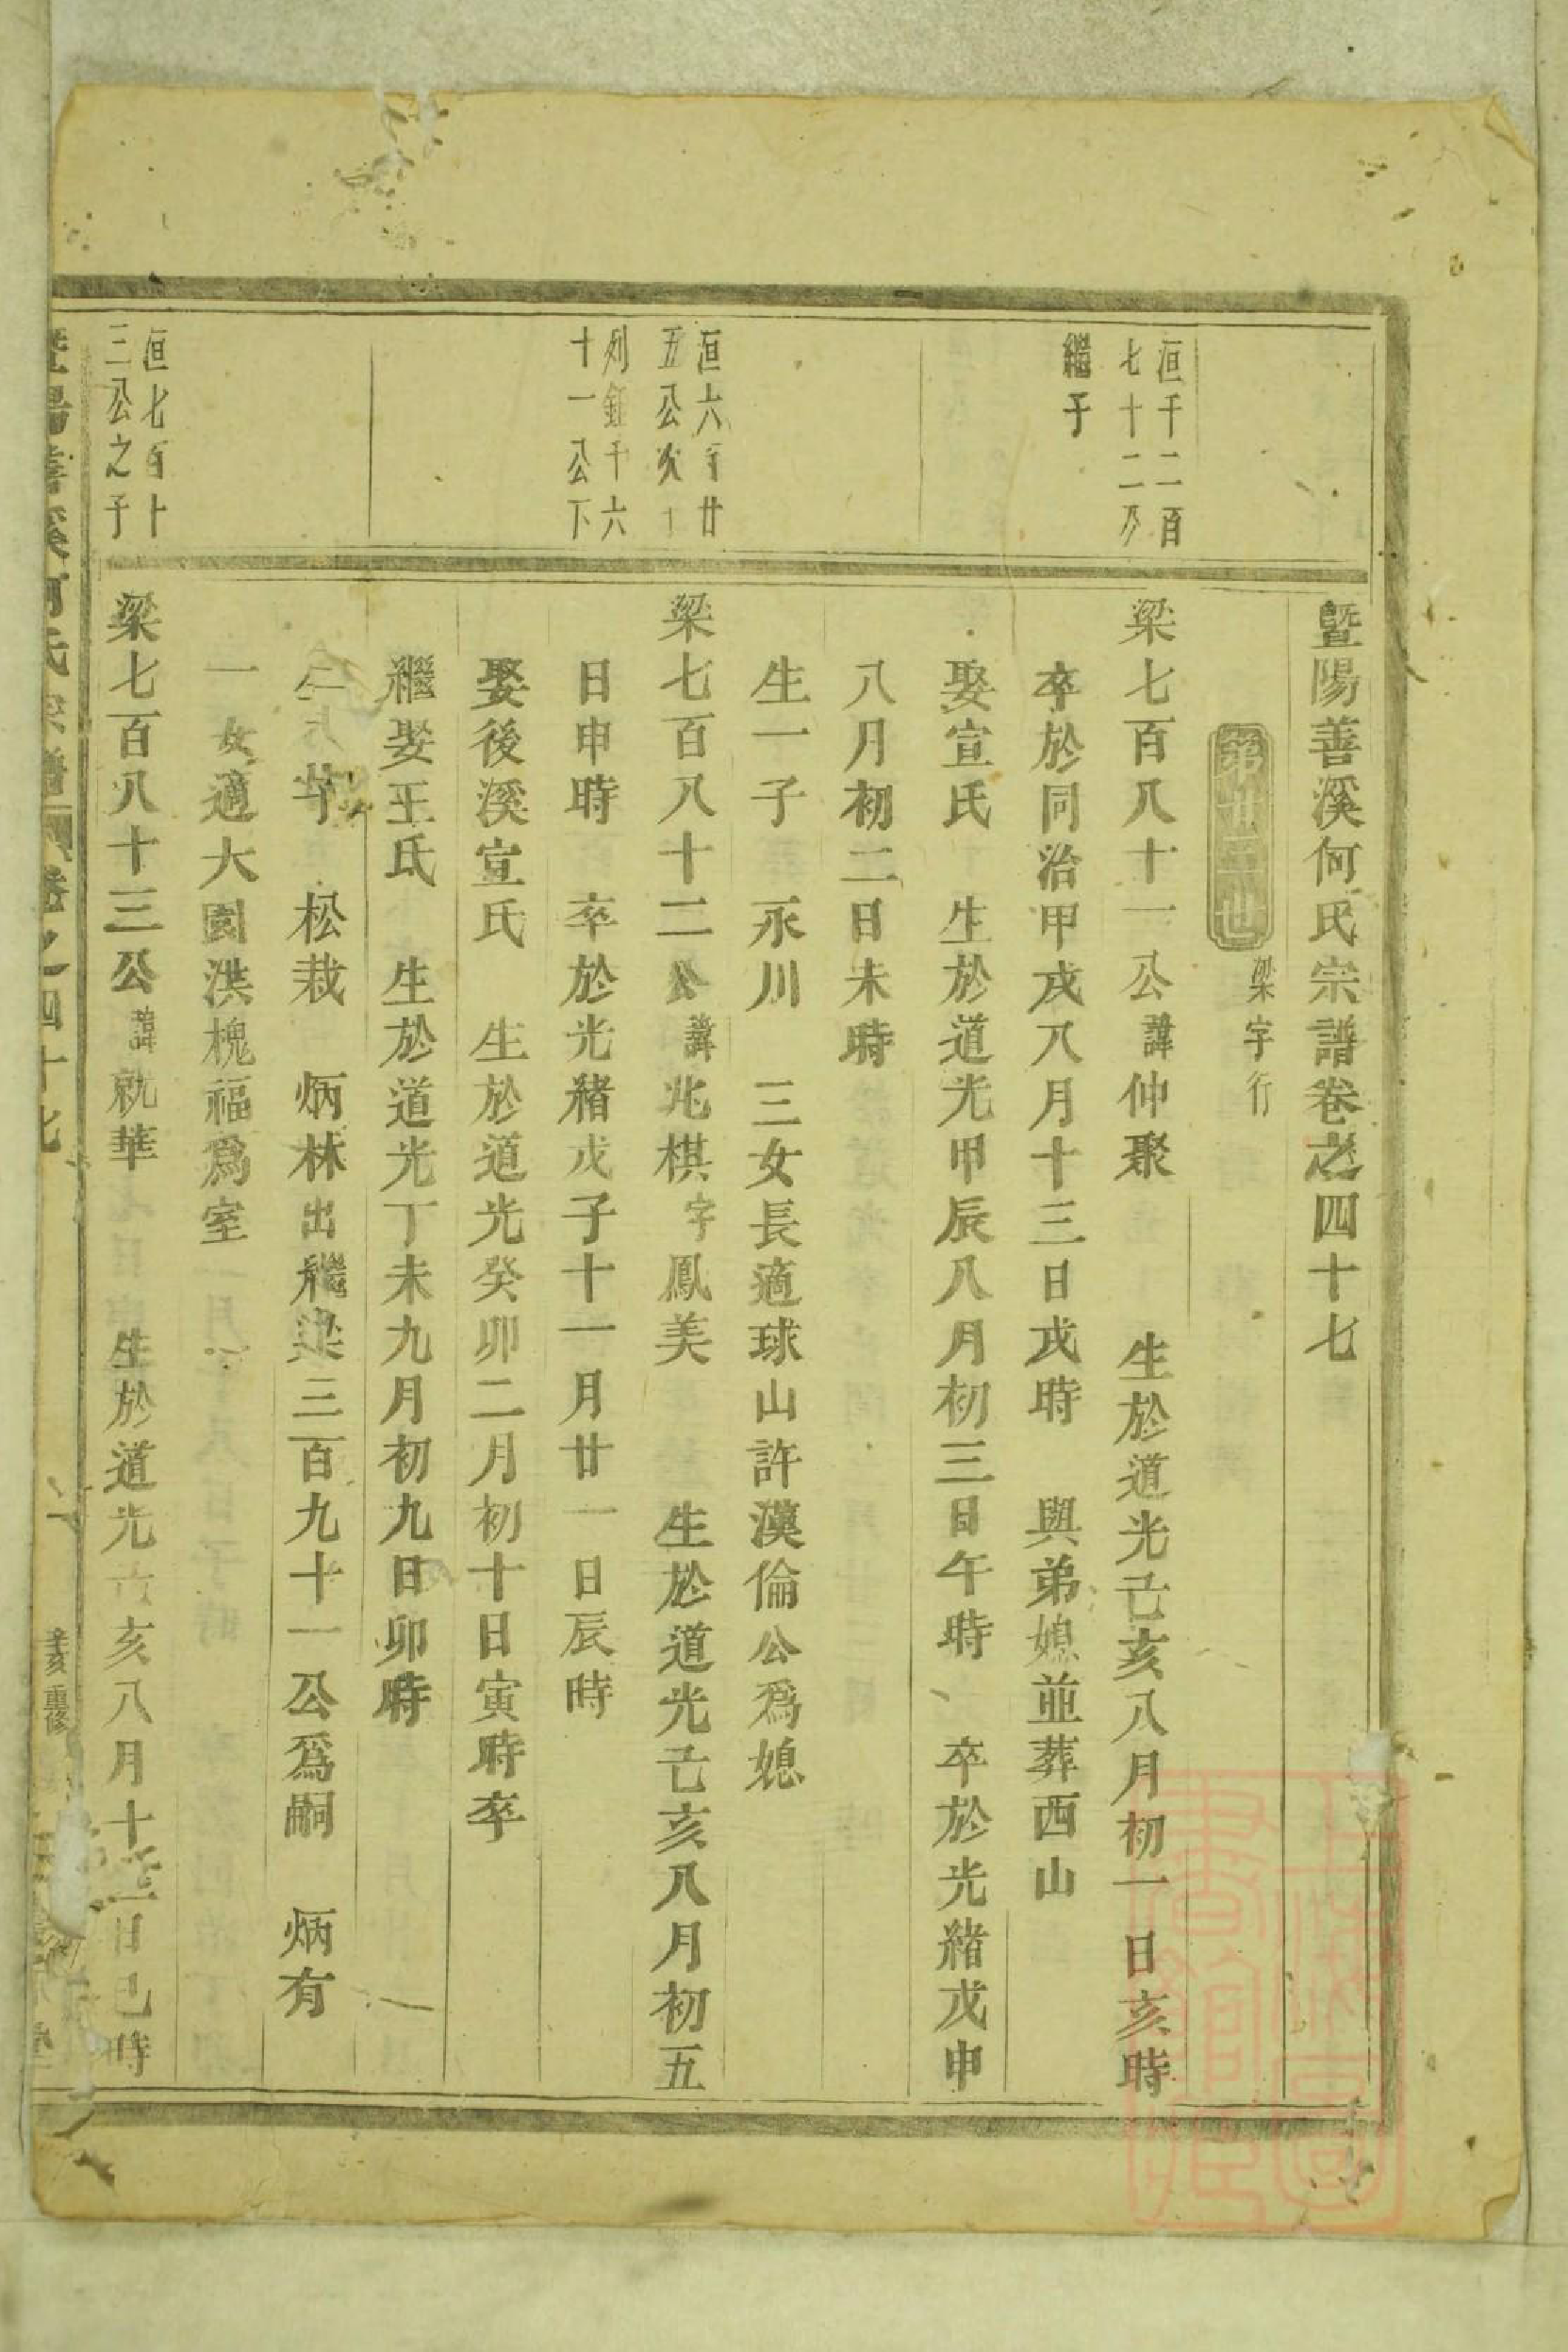 暨陽善溪何氏宗譜卷之四十七
第廿五世
梁字行
洹千二百
七十二公
繼子
梁七百八十一公諱仲聚 生於道光己亥八月初一日亥時
卒於同治甲戌八月十三日戌時 與弟媳並葬西山
娶宣氏 生於道光甲辰八月初三日午時 卒於光緒戊申
八月初二日未時
生一子 永川 三女長適球山許漢倫公爲媳
洹六百廿
五公次
列鉦千六
十一公下
梁七百八十二公諱兆棋字鳳美 生於道光己亥八月初五
日申時 卒於光緒戊子十一月廿一日辰時
娶後溪宣氏 生於道光癸卯二月初十日寅時卒
繼娶王氏 生於道光丁未九月初九日卯時
松栽 炳林出繼梁三百九十一公爲嗣 炳有
一女適大園洪槐福爲室
洹七百十
三公之子
梁七百八十三公諱就華 生於道光 亥八月十 日巳時
暨陽善溪何氏宗譜 卷之四十七
一
辛亥重修